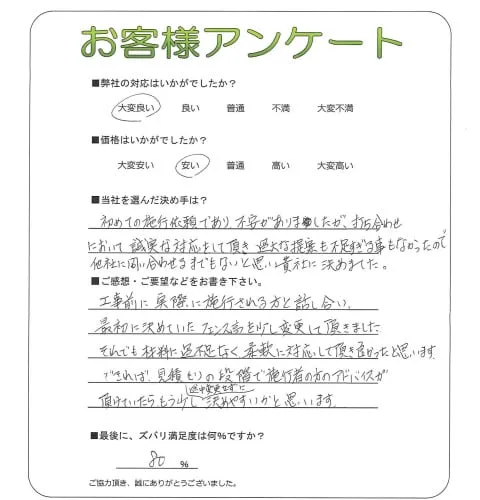 お客様アンケート
■弊社の対応はいかがでしたか?
大変良い 良い 普通 不満 大変不満
■価格はいかがでしたか?
大変安い 安い 普通 高い 大変高い
■当社を選んだ決め手は?
初めての施行依頼であり、不安がありましたが、打ち合わせ
において誠実な対応をして頂き 過大な提案も不足すぎる事もなかったので
他社に問い合わせるまでもないと思い貴社に決めました。
■ご感想・ご要望などをお書き下さい。
工事前に実際に施行される方と話し合い、
最初に決めていたフェンス高を少し変更して頂きました
それでも材料に過不足なく柔軟に対応して頂き良かったと思います
できれば、見積もりの段階で施行者の方のアドバイスが
途中変更せずに
頂けていたらもう少し決めやすいかと思います。
■最後に、ズバリ満足度は何%ですか?
80 %
ご協力頂き、誠にありがとうございました。